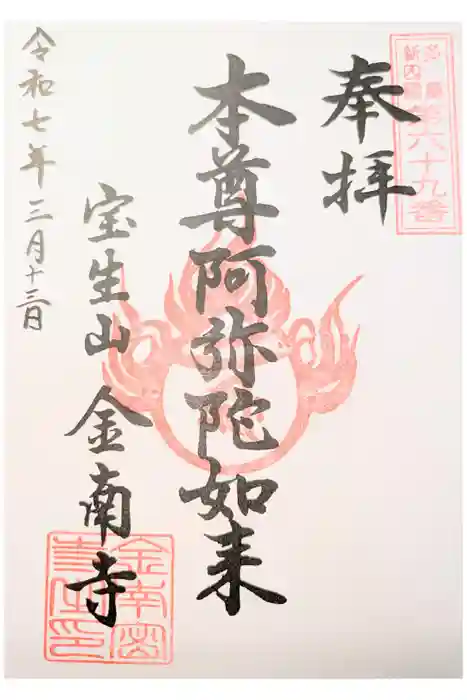 奉拝
本尊阿弥陀如来
宝生山 金南寺
令和七年三月十三日
多摩
新四国
第六十九番